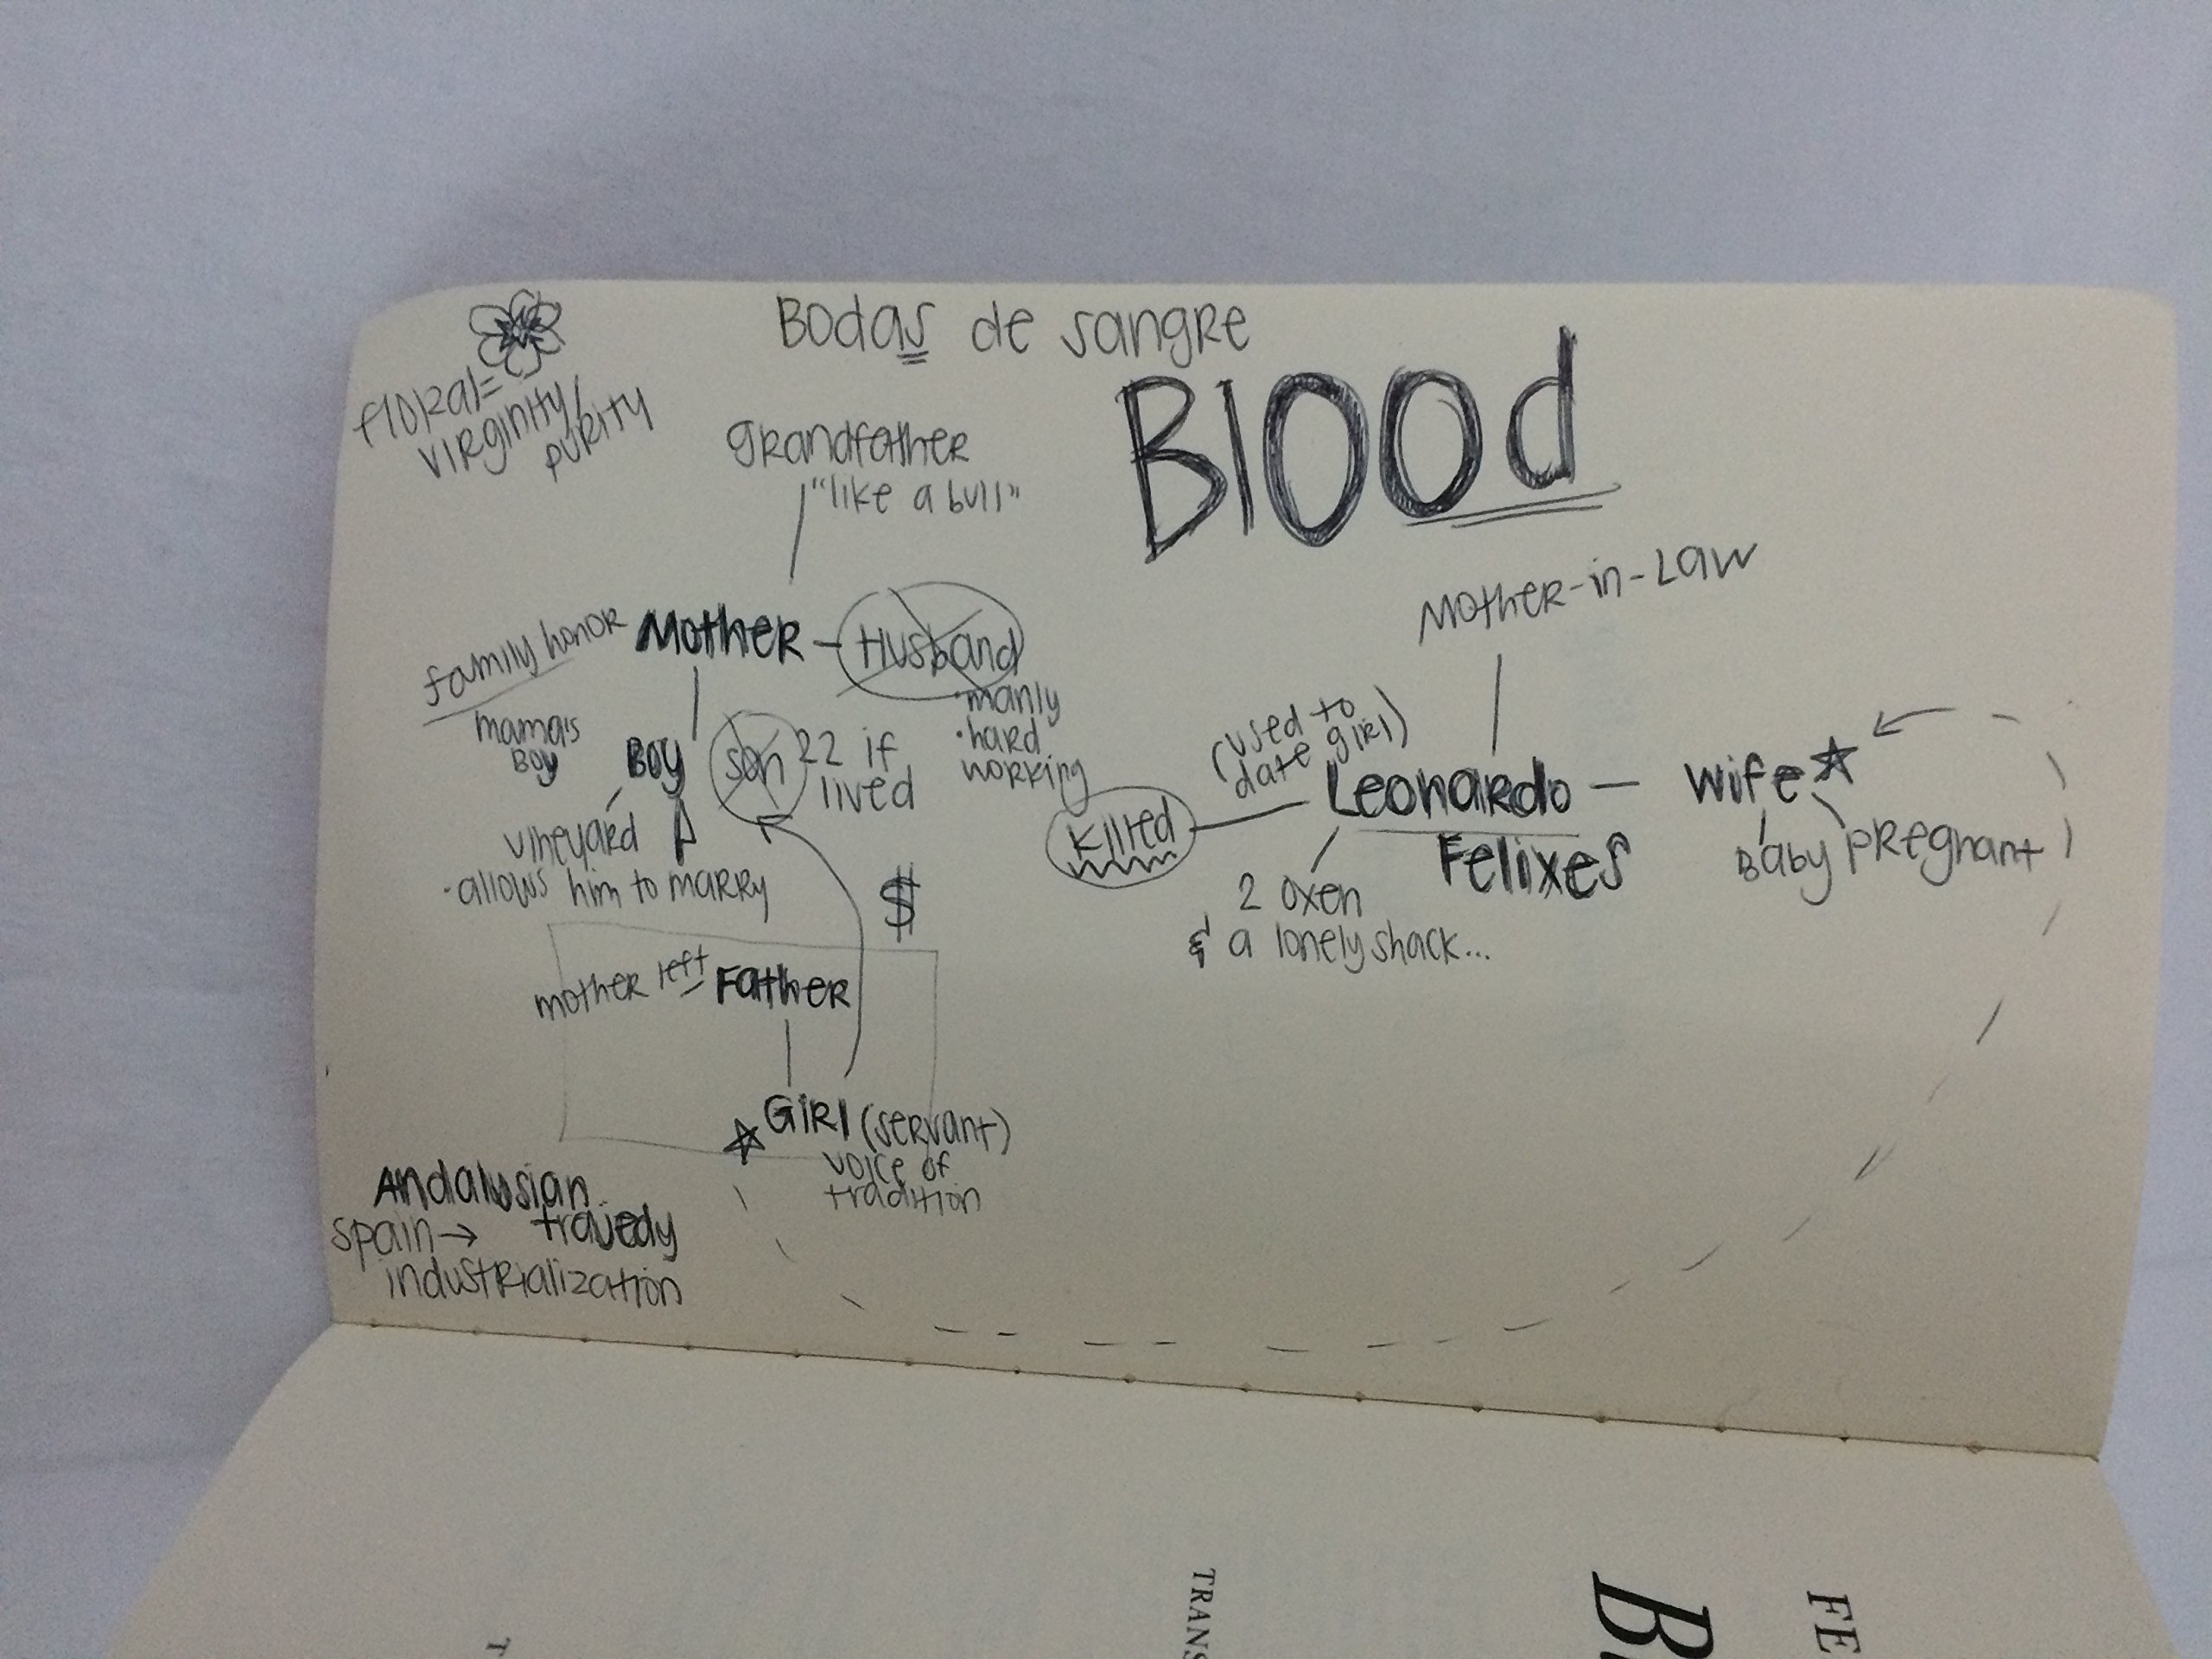 Bodas de sangre
Blood
floral =
virginity/
purity
grandfather
"like a bull"
Mother-in-Law
family honor
Mother - Husband
· manly
· hard
working
mama's
Boy
Boy
son
22 if
lived
(used to
date girl)
Leonardo - wife
killed
Felixes
Baby
pregnant
vineyard
· allows him to marry
$
2 oxen
& a lonely shack...
mother left
Father
Girl (servant)
voice of
tradition
Andalusian
spain → tragedy
industrialization
TRANS
B
FE
T